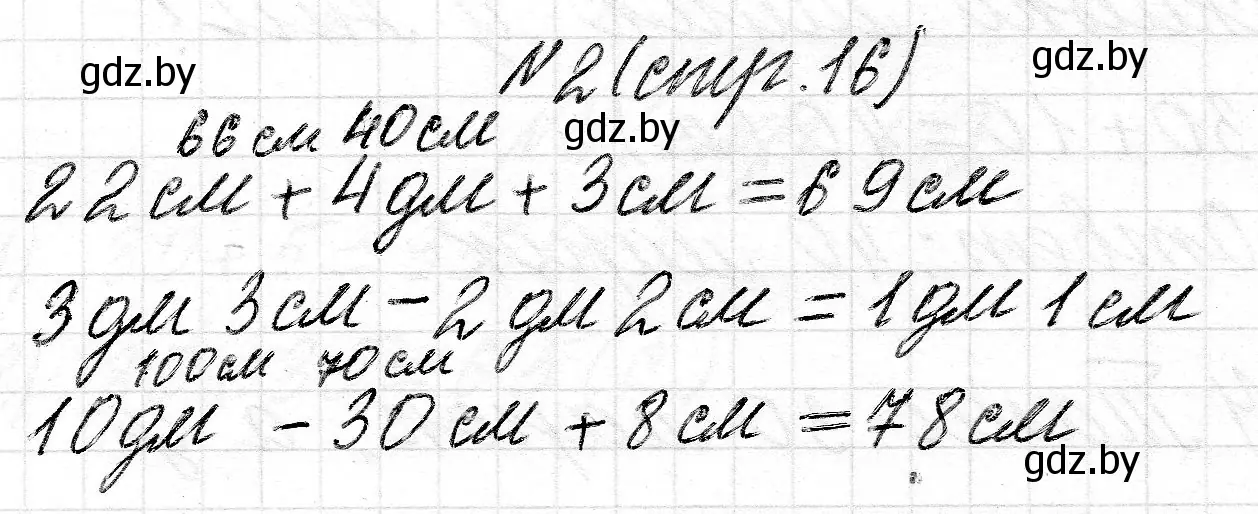 gdz.by
№2 (стр. 16)
gdz.by
66 см 40 см
gdz.by
22 см + 4 дм + 3 см = 69 см
3 дм 3 см - 2 дм 2 см = 1 дм 1 см
100 см 70 см
10 дм - 30 см + 8 см = 78 см
gdz.by